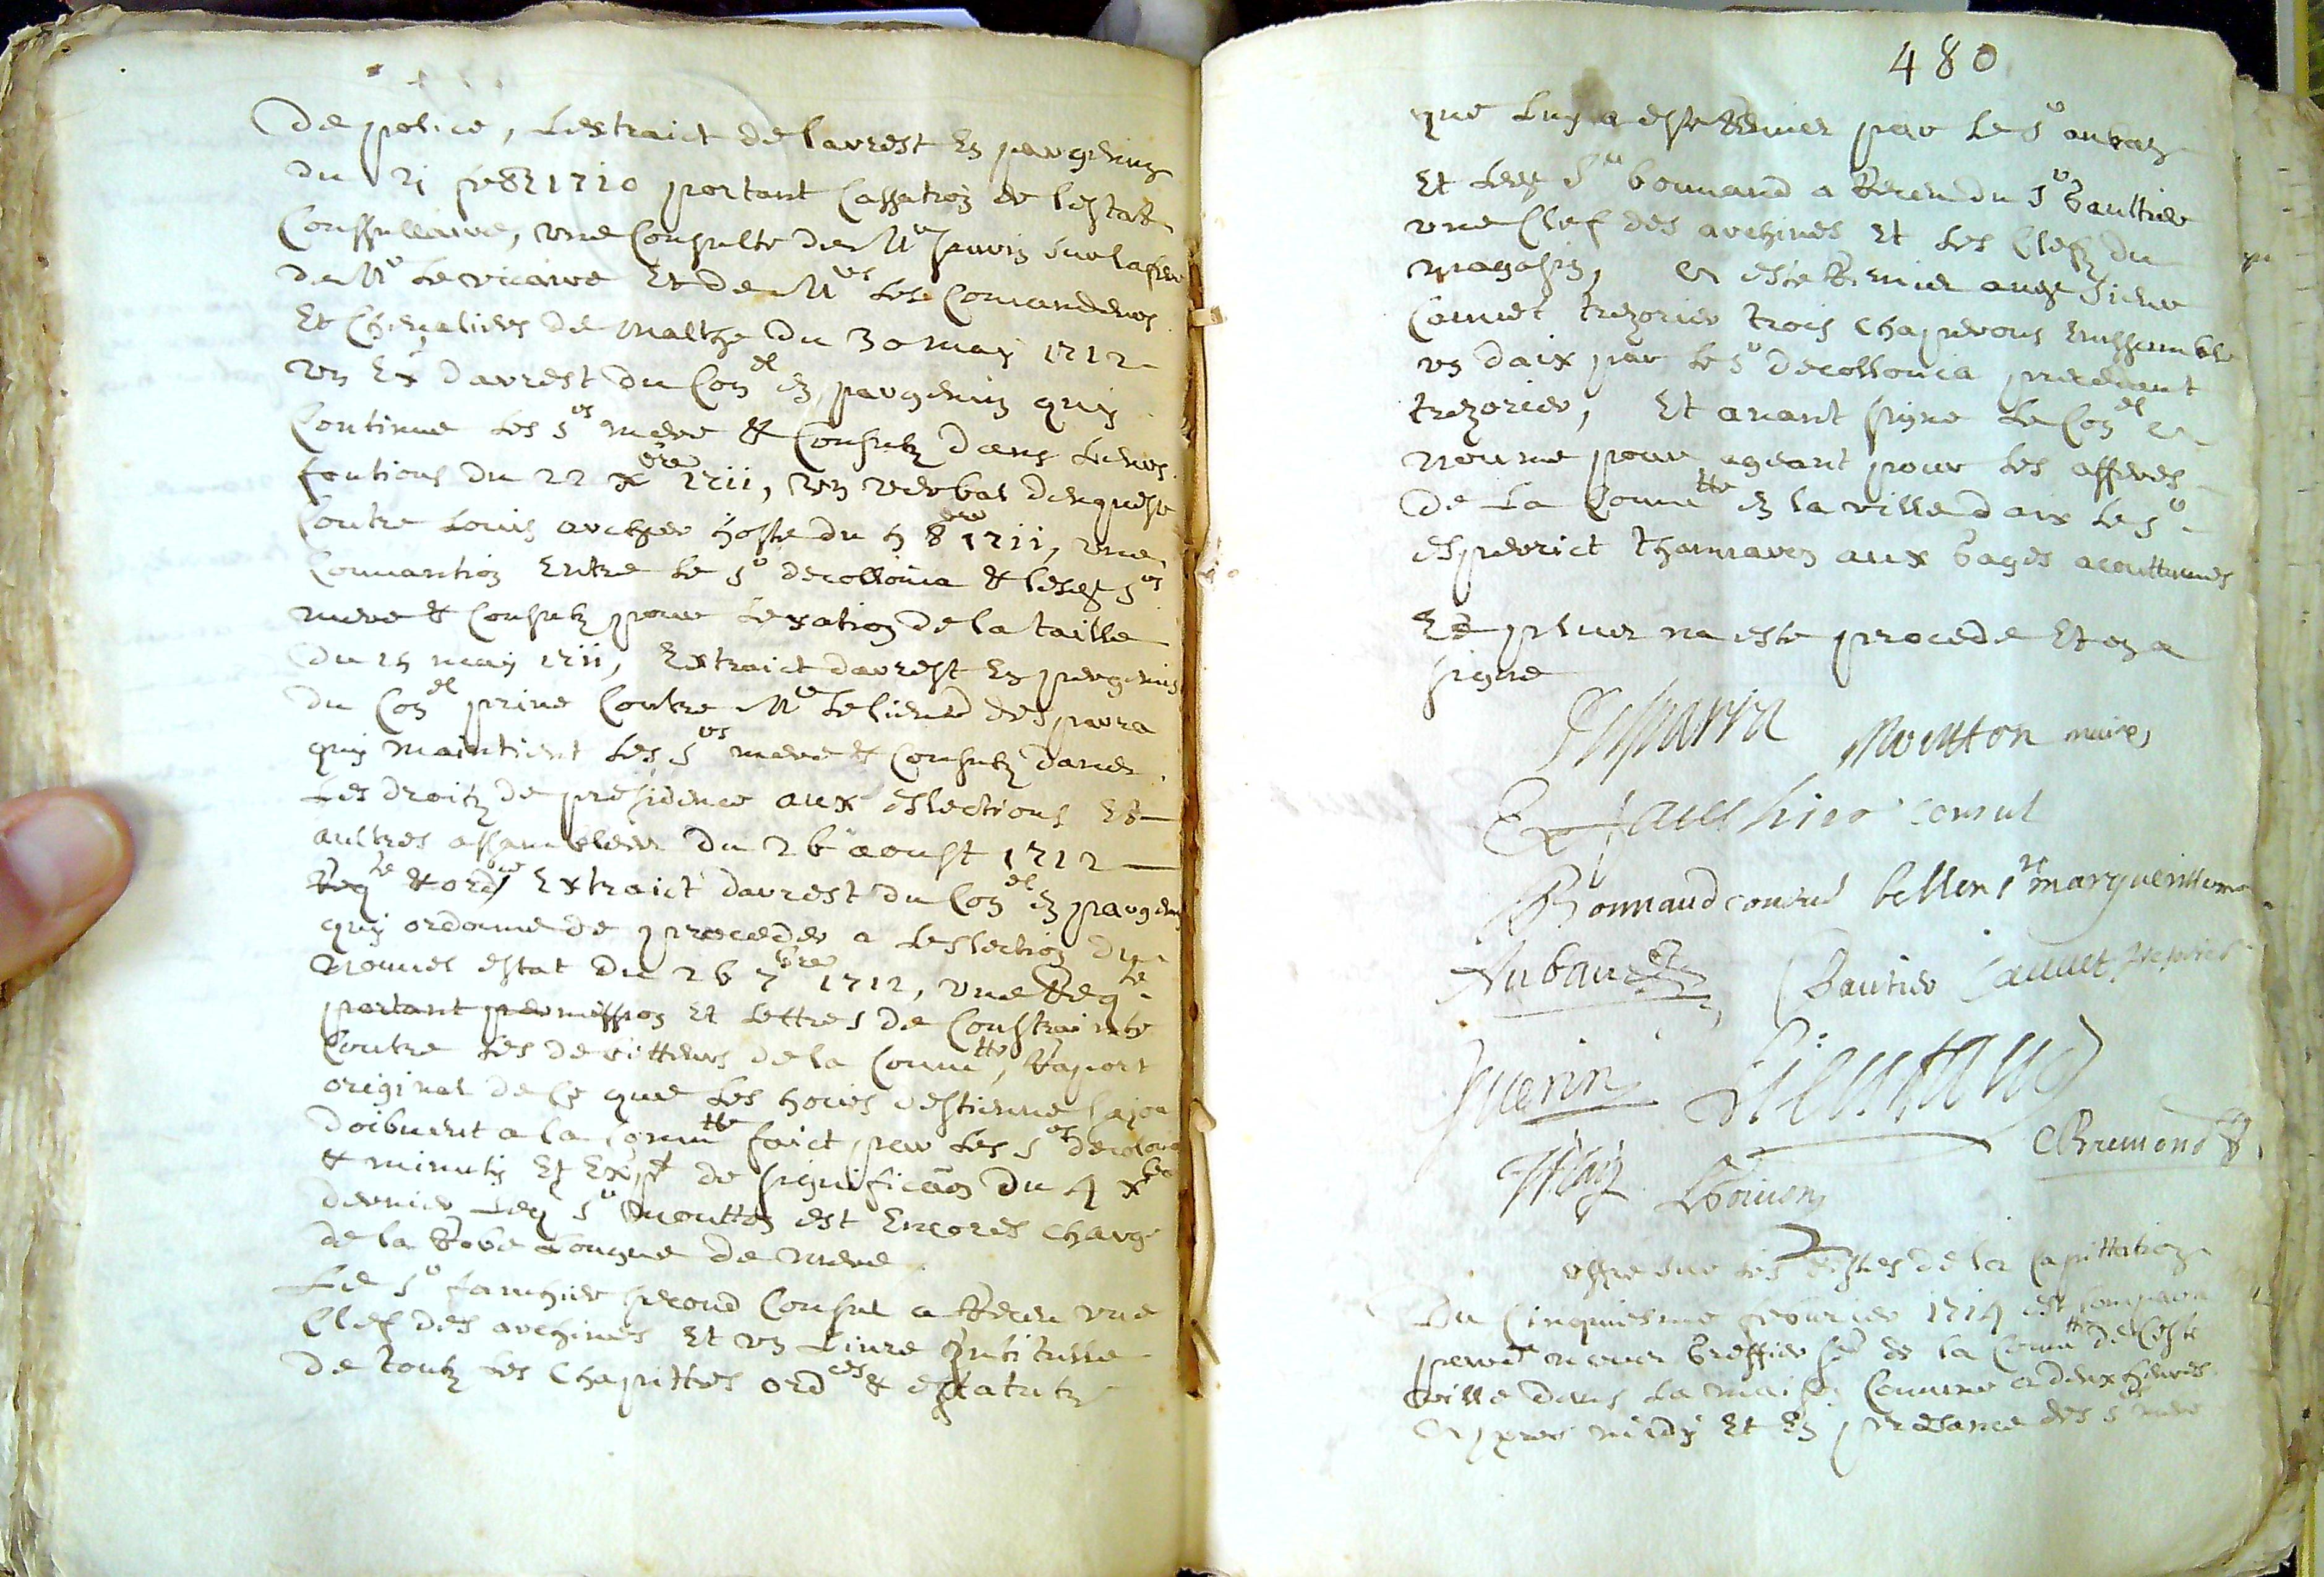 de police, Lextraict de larrest En pargemin
du 21 fe8r 1720 portant Cassation de lestat
Conssullaire, une Consulte de Mr Jauvin sur lafere
de Mr Le vicaire Et de Mrs Les Comandeurs
Et Chevaliers de Malthe du 30 may 1712
un Ex darrest du Conel En pargemin quy
Continue Les srs mere & Consulz dans Leurs
fontions du 22 xbre 1711, un verbal denqueste
Contre Louis archier hoste du 5 8bre 1711, une
Convantion Entre Le sr decollonia & lesd srs
mere & Consulz pour Lexation de la taille
du 15 may 1711, Extraict darrest En pargemin
du Conel prive Contre Mr Le lieuts desparra
quy maintient Les srs mere & Consulz dans
Les droitz de presidence aux eslections Et
aultres assamblees du 26 aoust 1712
Reqte & ordce Extraict darrest du Conel En pargemin
quy ordonne de proceder a Leslection du
nouvel estat du 26 7bre 1712, une Reqte
portant permission Et Lettres de Constrainte
Contre Les debitteurs de la Commtte, Raport
original de Ce que Les hoirs destienne
doibvent a la Commtte faict par Les srs decolonia
& minuty Et Expt de significaon du 4 xbre
dernier Led sr moutton est Encores Charge
de la Robe Longue de mere
Le sr fauchier second Consul a Receu une
Clef des archives Et un Livre Intitulle
de toutz Les Chapittres ordces & estatutz
480
que Luy a este Remis par Le sr auban
Et Led sr bonnaud a Receu du sr Gaultier
une Clef des archives Et Les Clefz du
magasin, a este Remis aud sieur
Cauvet trezorier trois Chaperons Enssamble
un daix par Le sr decollonia precedent
trezorier, Et avant signe Le Conel a
nomme pour ageant pour Les afferes
de La Commtte En la ville daix Le sr
esperrict aux Gages acouttumes
Et plus na este procede Et on a
signe
Esparra Moutton maire
fauchier consul
Bonnaud consul bellon sr marguerittone
Auban Gautier Cauvet trezorier
Guerin Lieutaud
Bremond
offre sur Les Listes de la Capittation
Du Cinquiesme feburier 1714 est Compareu
pardt nous Greffier de la Commtte de Ceste
ville dans La maison Comune a deux heures
apres midy Et En presance des srs mere